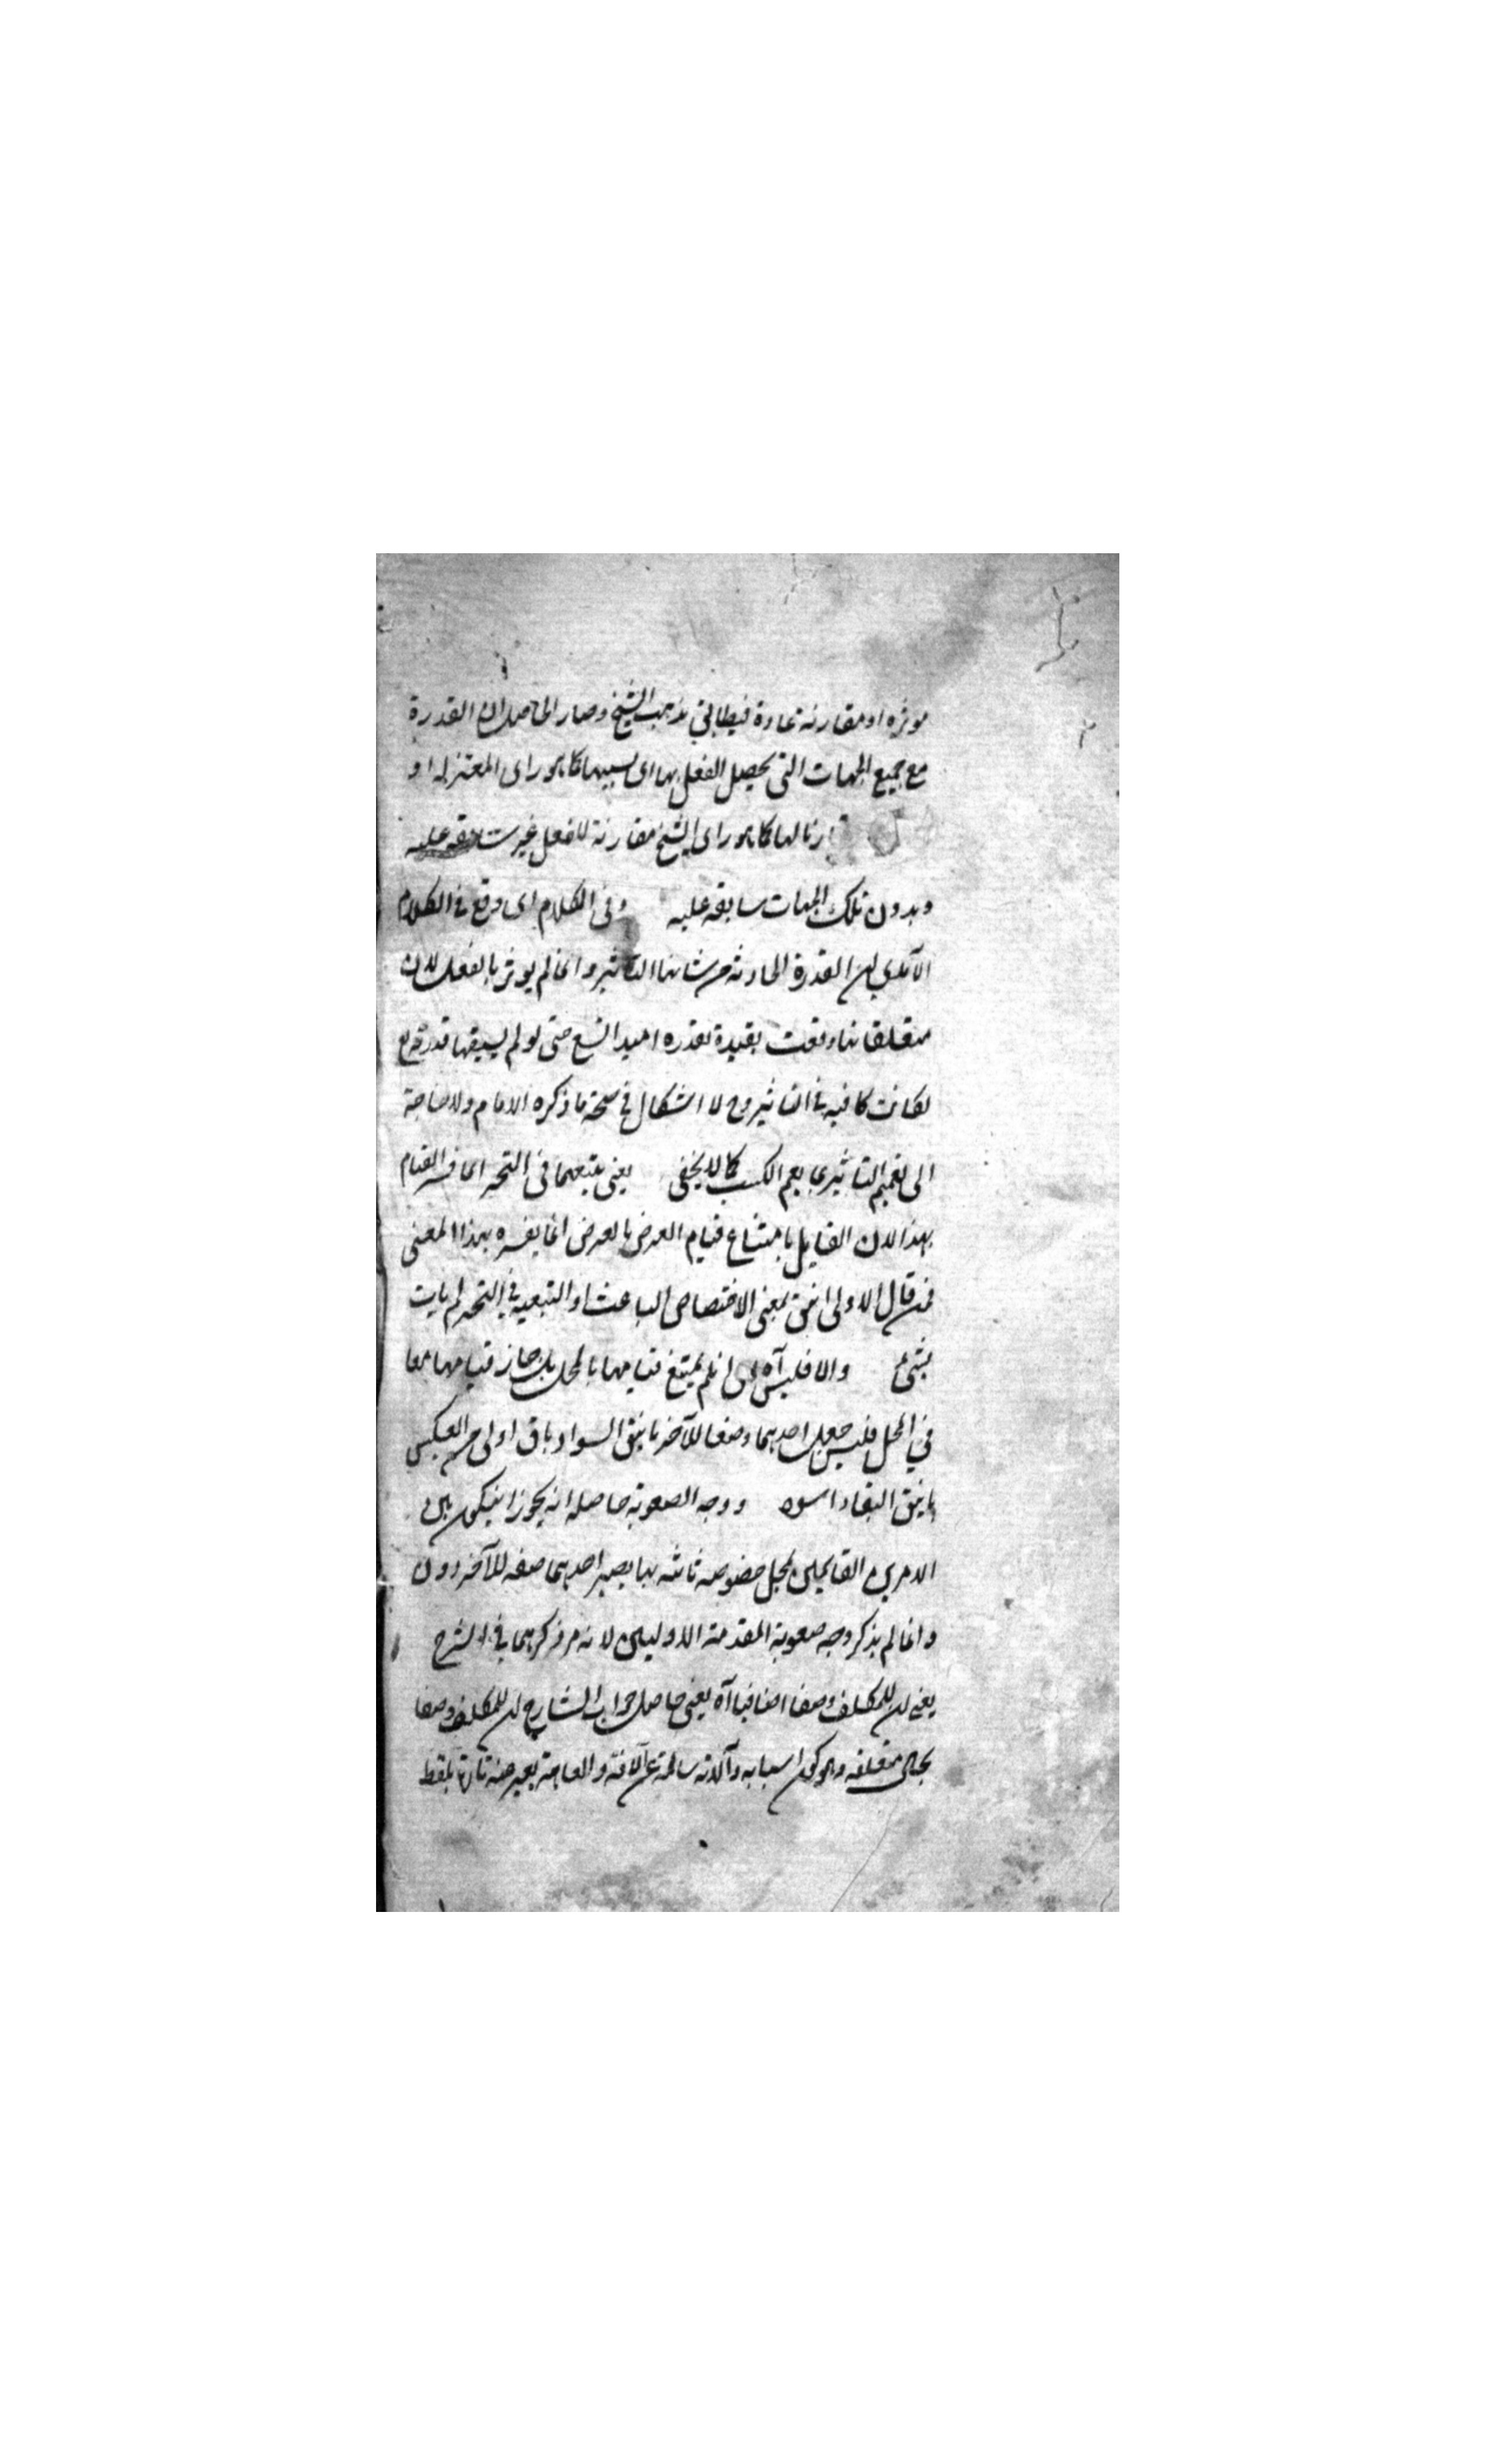 موثره او مقارنة عادة فيطابق مذهب الشيخ وصار الحاصل ان القدرة
مع جميع الجهات التى يحصل الفعل بها اى بسببها كما هو راى المعتزله او
رنا لها كما هو راى الشيخ مقارنة للفعل غير سابقه عليه
وبدون تلك الجهات سابقه عليه وفى الكلام اى وقع فى الكلام
الآمدي ان القدرة الحادثه من شانها التاثير وانما لم يوثر بالفعل لان
متعلقاتها وقعت بقدرة الله حتى لو لم يسبقها قدرته تع
لكانت كافيه فى التاثير وح لا اشكال فى صحة ما ذكره الامام ولا حاجة
الى تعميم التاثير بما يعم الكسب كما لا يخفى يعنى بتبعهما فى التحيز انما فسر القيام
بهذا لان القايل بامتناع قيام العرض بالعرض انما يفسره بهذا المعنى
فمن قال الاولى ان يق بمعنى الاختصاص الباعث او التبعيه فى التحيز لم يات
بشىء والا فليس آه اى ان لم يمتنع قيامها بالمحل بل جاز قيامهما معا
فى المحل فليس جعل احدهما وصفا للآخر بان يق السواد باق اولى من العكس
بان يق البقاء اسود ووجه الصعوبة حاصله انه يجوز ان يكون بين
الامرين القايمين بمحل خصوصه ناشه بها يصير احدهما صفه للآخر دون
وانما لم يذكر وجه صعوبة المقدمة الاوليين لانه مر ذكرهما فى الشرح
يعنى ان للمكلف وصفا اضافيا آه يعنى حاصل جواب الشارح ان للمكلف وصفا
بحال متعلقه وهو كون اسبابه وآلاته سالمة عن الآفة والعاهة يعبر عنه تارة بلفظ